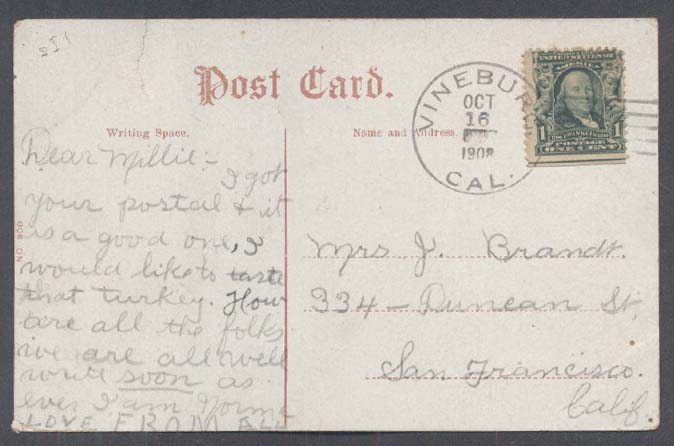 Post Card.
Writing Space.
Name and Address.
VINEBURG
OCT
16
1908
CAL.
UNITED STATES OF AMERICA
1 FRANKLIN 1
POSTAGE
ONE CENT
Dear Millie:-
I got
your postal & it
is a good one, I
would like to taste
that turkey. How
are all the folks
we are all well
write soon as
ever I am
LOVE FROM ALL
Mrs J. Brandt.
334 - Duncan St,
San Francisco.
Calif.